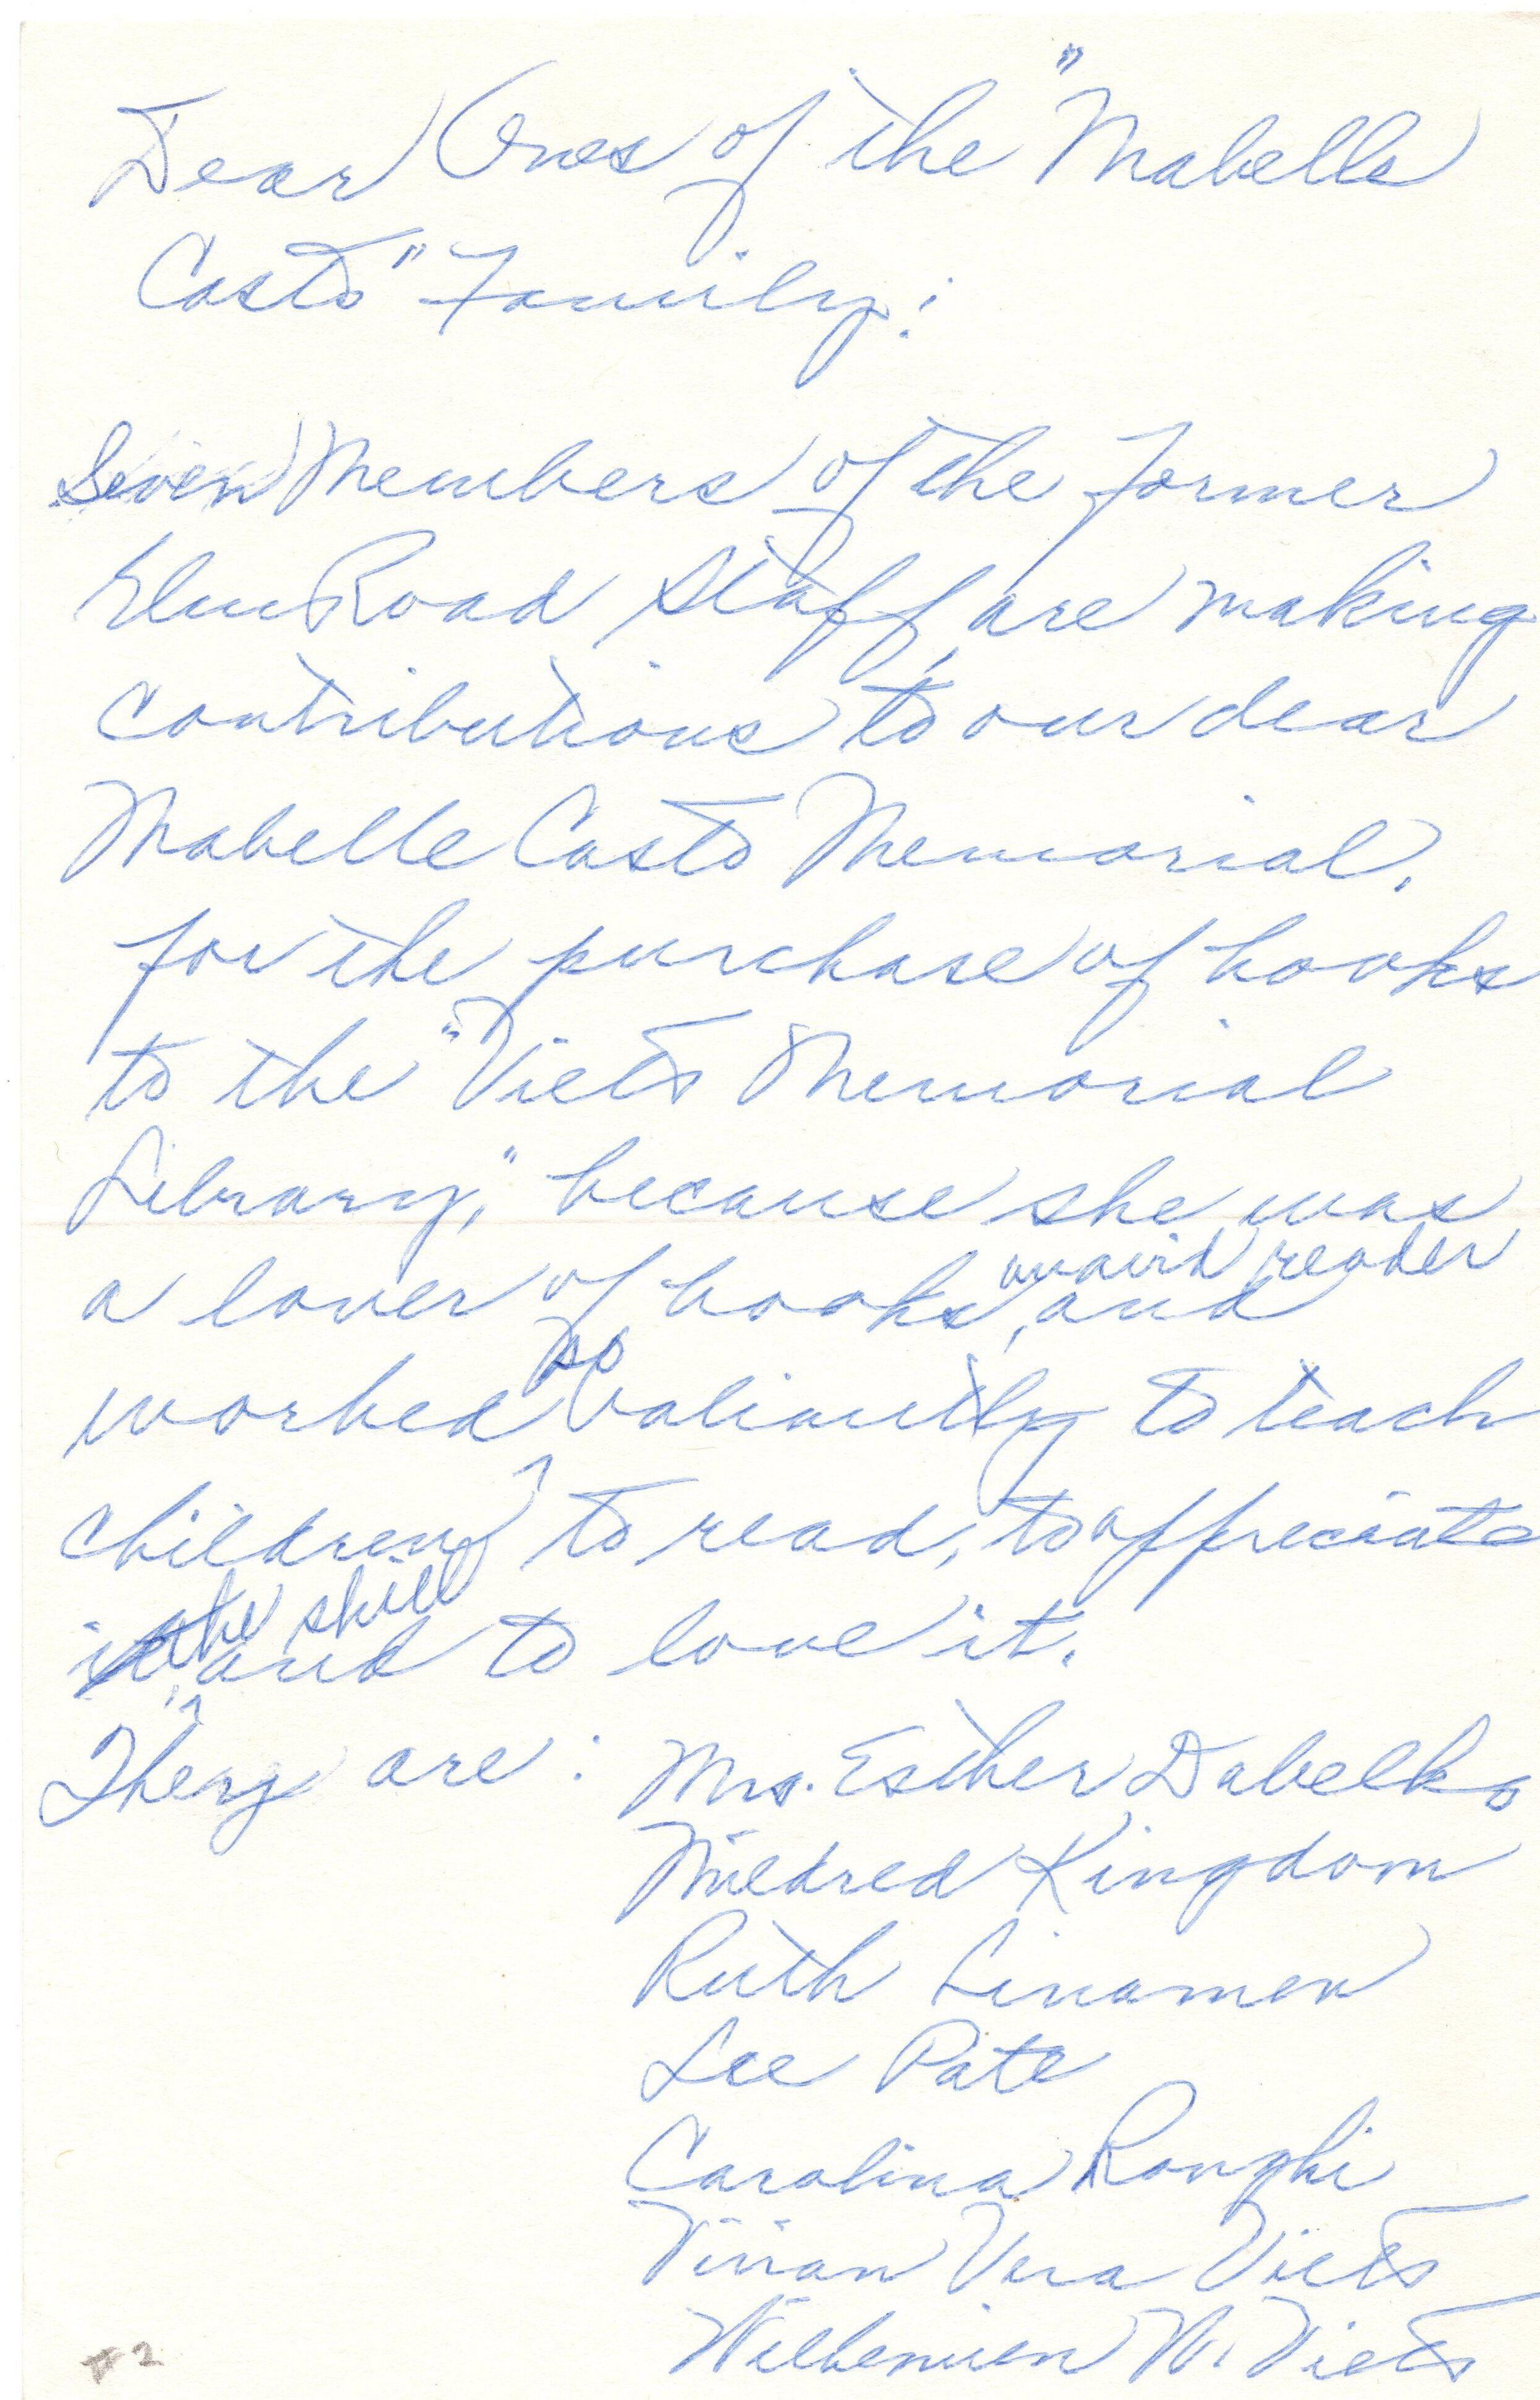 Dear Ones of the "Mabelle
Casto" Family:
Seven Members of the Former
Elm Road Staff, are making
contributions to our dear
Mabelle Casto Memorial,
for the purchase of books
to the "Viets Memorial
Library," because she was
a lover of books, avaid reader and
worked so valiantly to teach
children to read, to appreciate
it, the skill and to love it.
They are: Mrs. Esther Dabelko
Mildred Kingdom
Ruth Linamen
Lee Pate
Carolina Ronghi
Vivian Vera Viets
Wilhemien W. Viets
#2